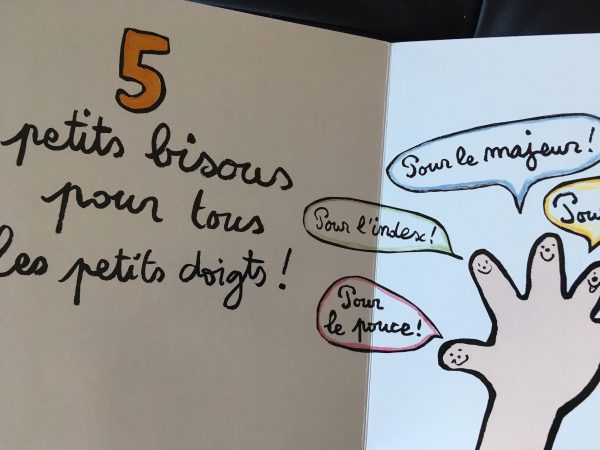 5
petits bisous
pour tous
les petits doigts !
Pour le majeur !
Pour l'index !
Pour
le pouce !